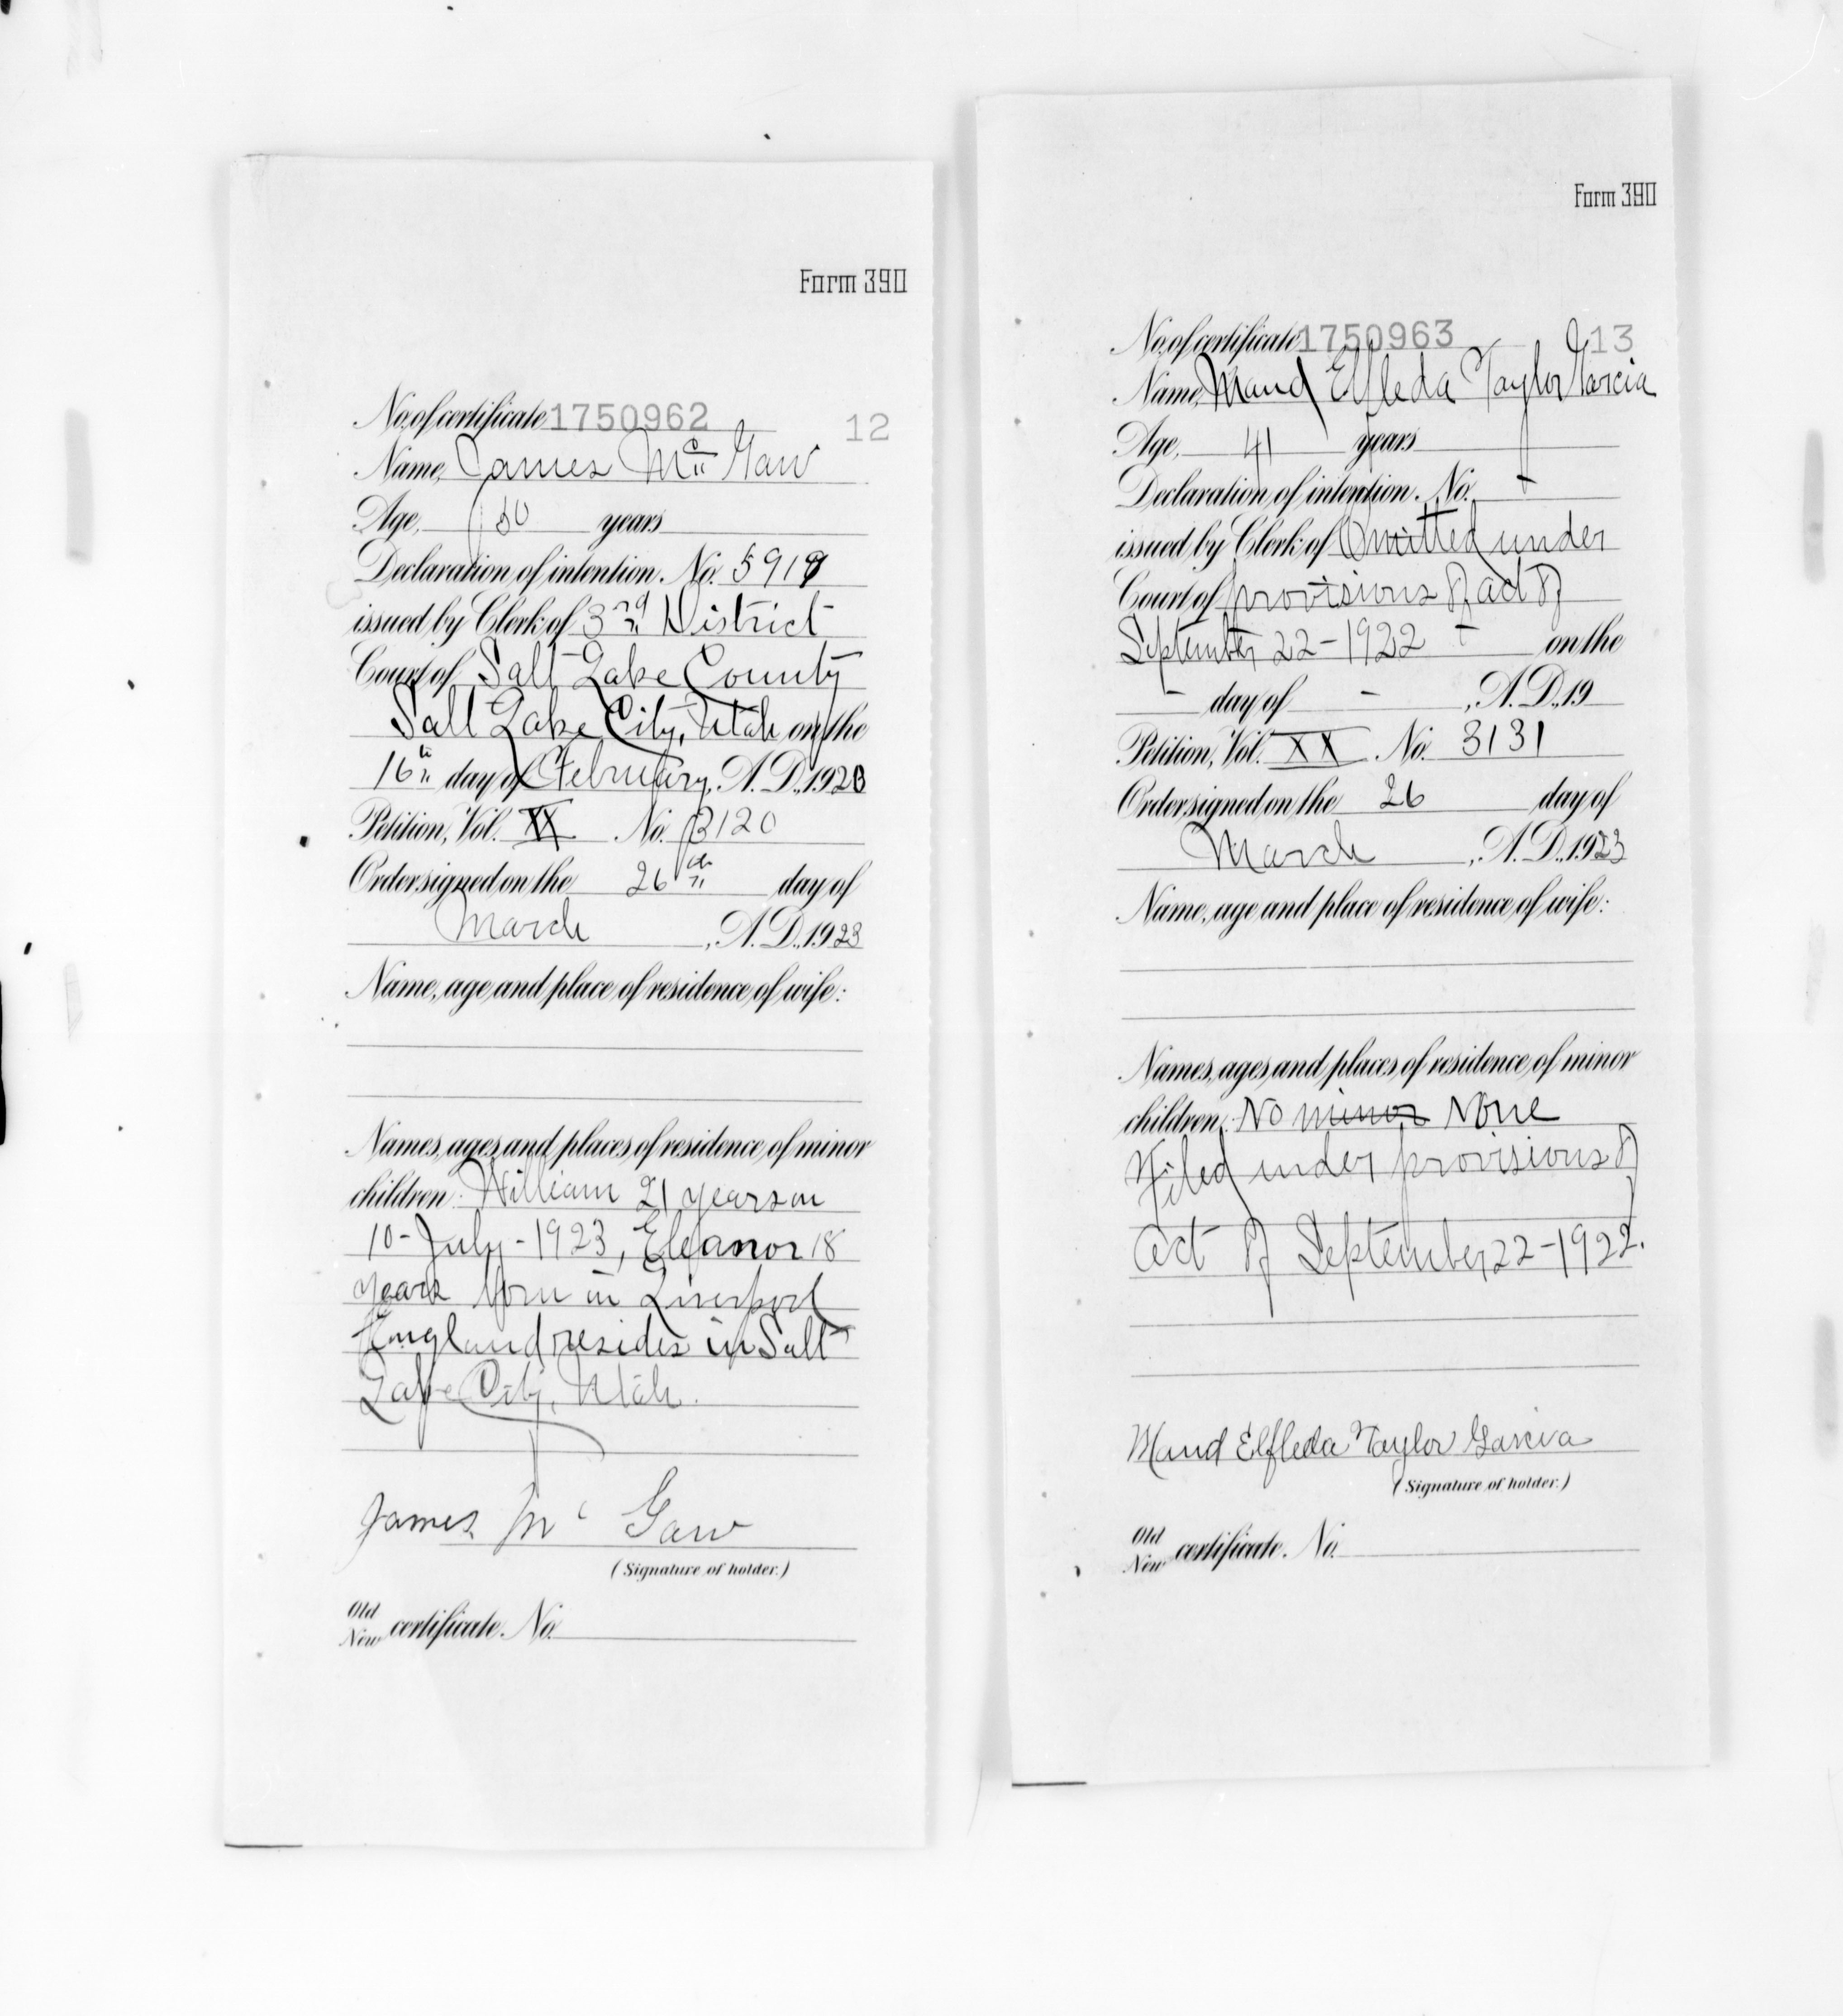 Form 390
No. of certificate 1750962 12
Name, James Mc Gaw
Age, 50 years
Declaration of intention. No. 5919
issued by Clerk of 3rd District
Court of Salt Lake County
Salt Lake City, Utah on the
16th day of February, A. D., 1920
Petition, Vol. XX No. 3120
Order signed on the 26th day of
March, A. D., 1923
Name, age and place of residence of wife:
Names, ages and places of residence of minor
children: William 21 years on
10-July-1923, Eleanor 18
years born in Liverpool
England resides in Salt
Lake City, Utah.
James Mc Gaw
(Signature of holder.)
Old
New certificate. No.
Form 390
No. of certificate 1750963 13
Name, Maud Elfleda Taylor Garcia
Age, 41 years
Declaration of intention. No. -
issued by Clerk of Omitted under
Court of provisions of act of
September 22-1922 - on the
- day of -, A. D., 19
Petition, Vol. XX No. 3131
Order signed on the 26 day of
March, A. D., 1923
Name, age and place of residence of wife:
Names, ages and places of residence of minor
children: No minor None
Filed under provisions of
act of September 22-1922.
Maud Elfleda Taylor Garcia
(Signature of holder.)
Old
New certificate. No.